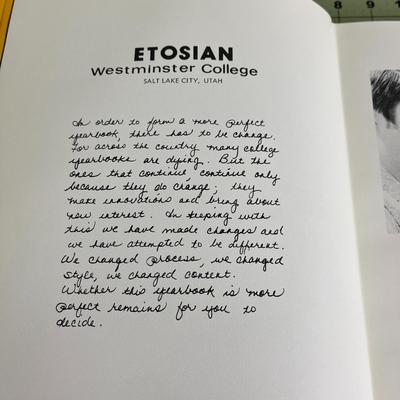 8 9
ETOSIAN
Westminster College
SALT LAKE CITY, UTAH
In order to form a more perfect
yearbook, there has to be change.
For across the country many college
yearbooks are dying. But the
ones that continue, continue only
because they do change; they
make innovations and bring about
new interest. In keeping with
this we have made changes and
we have attempted to be different.
We changed process, we changed
style, we changed content.
Whether this yearbook is more
perfect remains for you to
decide.